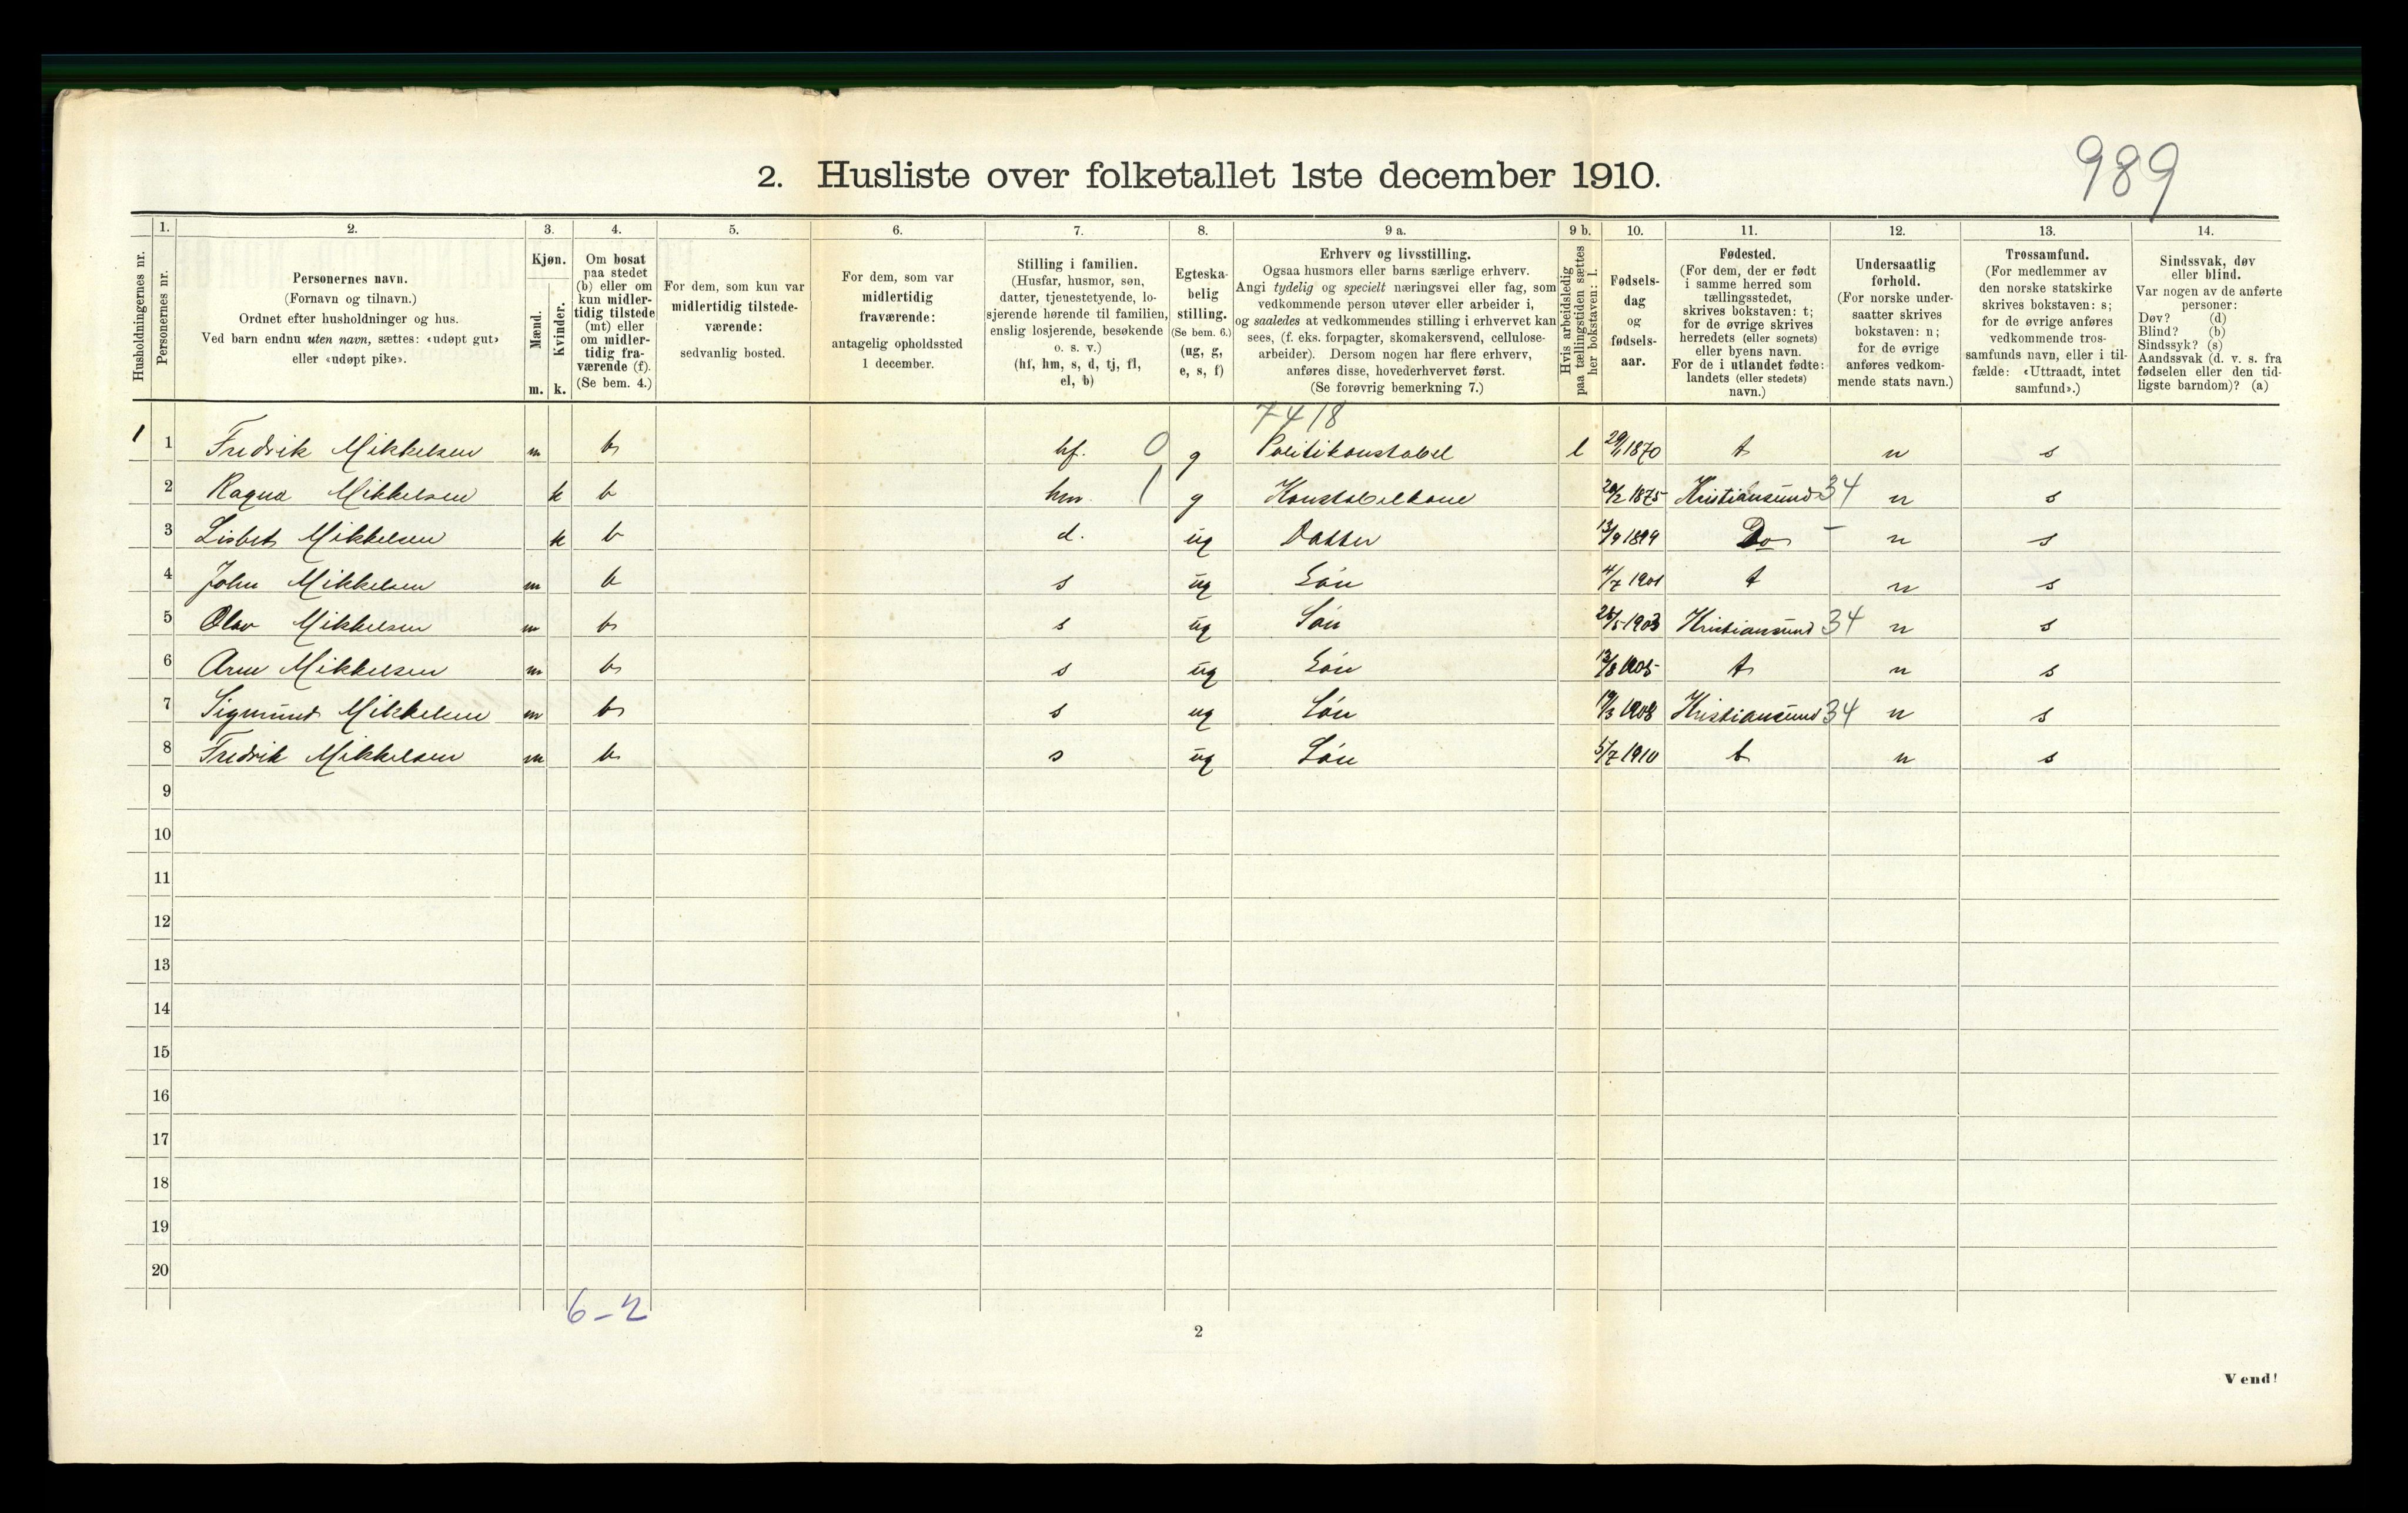 989
2. Husliste over folketallet 1ste december 1910.
Husholdningernes nr.
1.
Personernes nr.
2.
Personernes navn.
(Fornavn og tilnavn.)
Ordnet efter husholdninger og hus.
Ved barn endnu uten navn, sættes: «udøpt gut»
eller «udøpt pike».
3.
Kjøn.
Mænd.
m.
Kvinder.
k.
4.
Om bosat
paa stedet
(b) eller om
kun midler-
tidig tilstede
(mt) eller
om midler-
tidig fra-
værende (f).
(Se bem. 4.)
5.
For dem, som kun var
midlertidig tilstede-
værende:
sedvanlig bosted.
6.
For dem, som var
midlertidig
fraværende:
antagelig opholdssted
1 december.
7.
Stilling i familien.
(Husfar, husmor, søn,
datter, tjenestetyende, lo-
sjerende hørende til familien,
enslig losjerende, besøkende
o. s. v.)
(hf, hm, s, d, tj, fl,
el, b)
8.
Egteska-
belig
stilling.
(Se bem. 6.)
(ug, g,
e, s, f)
9 a.
Erhverv og livsstilling.
Ogsaa husmors eller barns særlige erhverv.
Angi tydelig og specielt næringsvei eller fag, som
vedkommende person utøver eller arbeider i,
og saaledes at vedkommendes stilling i erhvervet kan
sees, (f. eks. forpagter, skomakersvend, cellulose-
arbeider). Dersom nogen har flere erhverv,
anføres disse, hovederhvervet først.
(Se forøvrig bemerkning 7.)
9 b.
Hvis arbeidsledig
paa tællingstiden sættes
her bokstaven: l.
10.
Fødsels-
dag
og
fødsels-
aar.
11.
Fødested.
(For dem, der er født
i samme herred som
tællingsstedet,
skrives bokstaven: t;
for de øvrige skrives
herredets (eller sognets)
eller byens navn.
For de i utlandet fødte:
landets (eller stedets)
navn.)
12.
Undersaatlig
forhold.
(For norske under-
saatter skrives
bokstaven: n;
for de øvrige
anføres vedkom-
mende stats navn.)
13.
Trossamfund.
(For medlemmer av
den norske statskirke
skrives bokstaven: s;
for de øvrige anføres
vedkommende tros-
samfunds navn, eller i til-
fælde: «Uttraadt, intet
samfund».)
14.
Sindssvak, døv
eller blind.
Var nogen av de anførte
personer:
Døv? (d)
Blind? (b)
Sindssyk? (s)
Aandssvak (d. v. s. fra
fødselen eller den tid-
ligste barndom)? (a)
7418
1 1 Fredrik Mikkelsen m b hf. 0 g Politikonstabel l 29/1 1870 t n s
2 Ragna Mikkelsen k b hm. 1 g Konstabelkone 1875 Kristiansund 34 n s
3 Lisbet Mikkelsen k b d. ug Datter 13/9 1899 Do – n s
4 John Mikkelsen m b s ug Søn 4/7 1901 t n s
5 Olav Mikkelsen m b s ug Søn 1903 Kristiansund 34 n s
6 Arne Mikkelsen m b s ug Søn 13/8 1905 t n s
7 Sigmund Mikkelsen m b s ug Søn 1908 Kristiansund 34 n s
8 Fredrik Mikkelsen m b s ug Søn 5/7 1910 t n s
9
10
11
12
13
14
15
16
17
18
19
20
6-2
2
Vend!